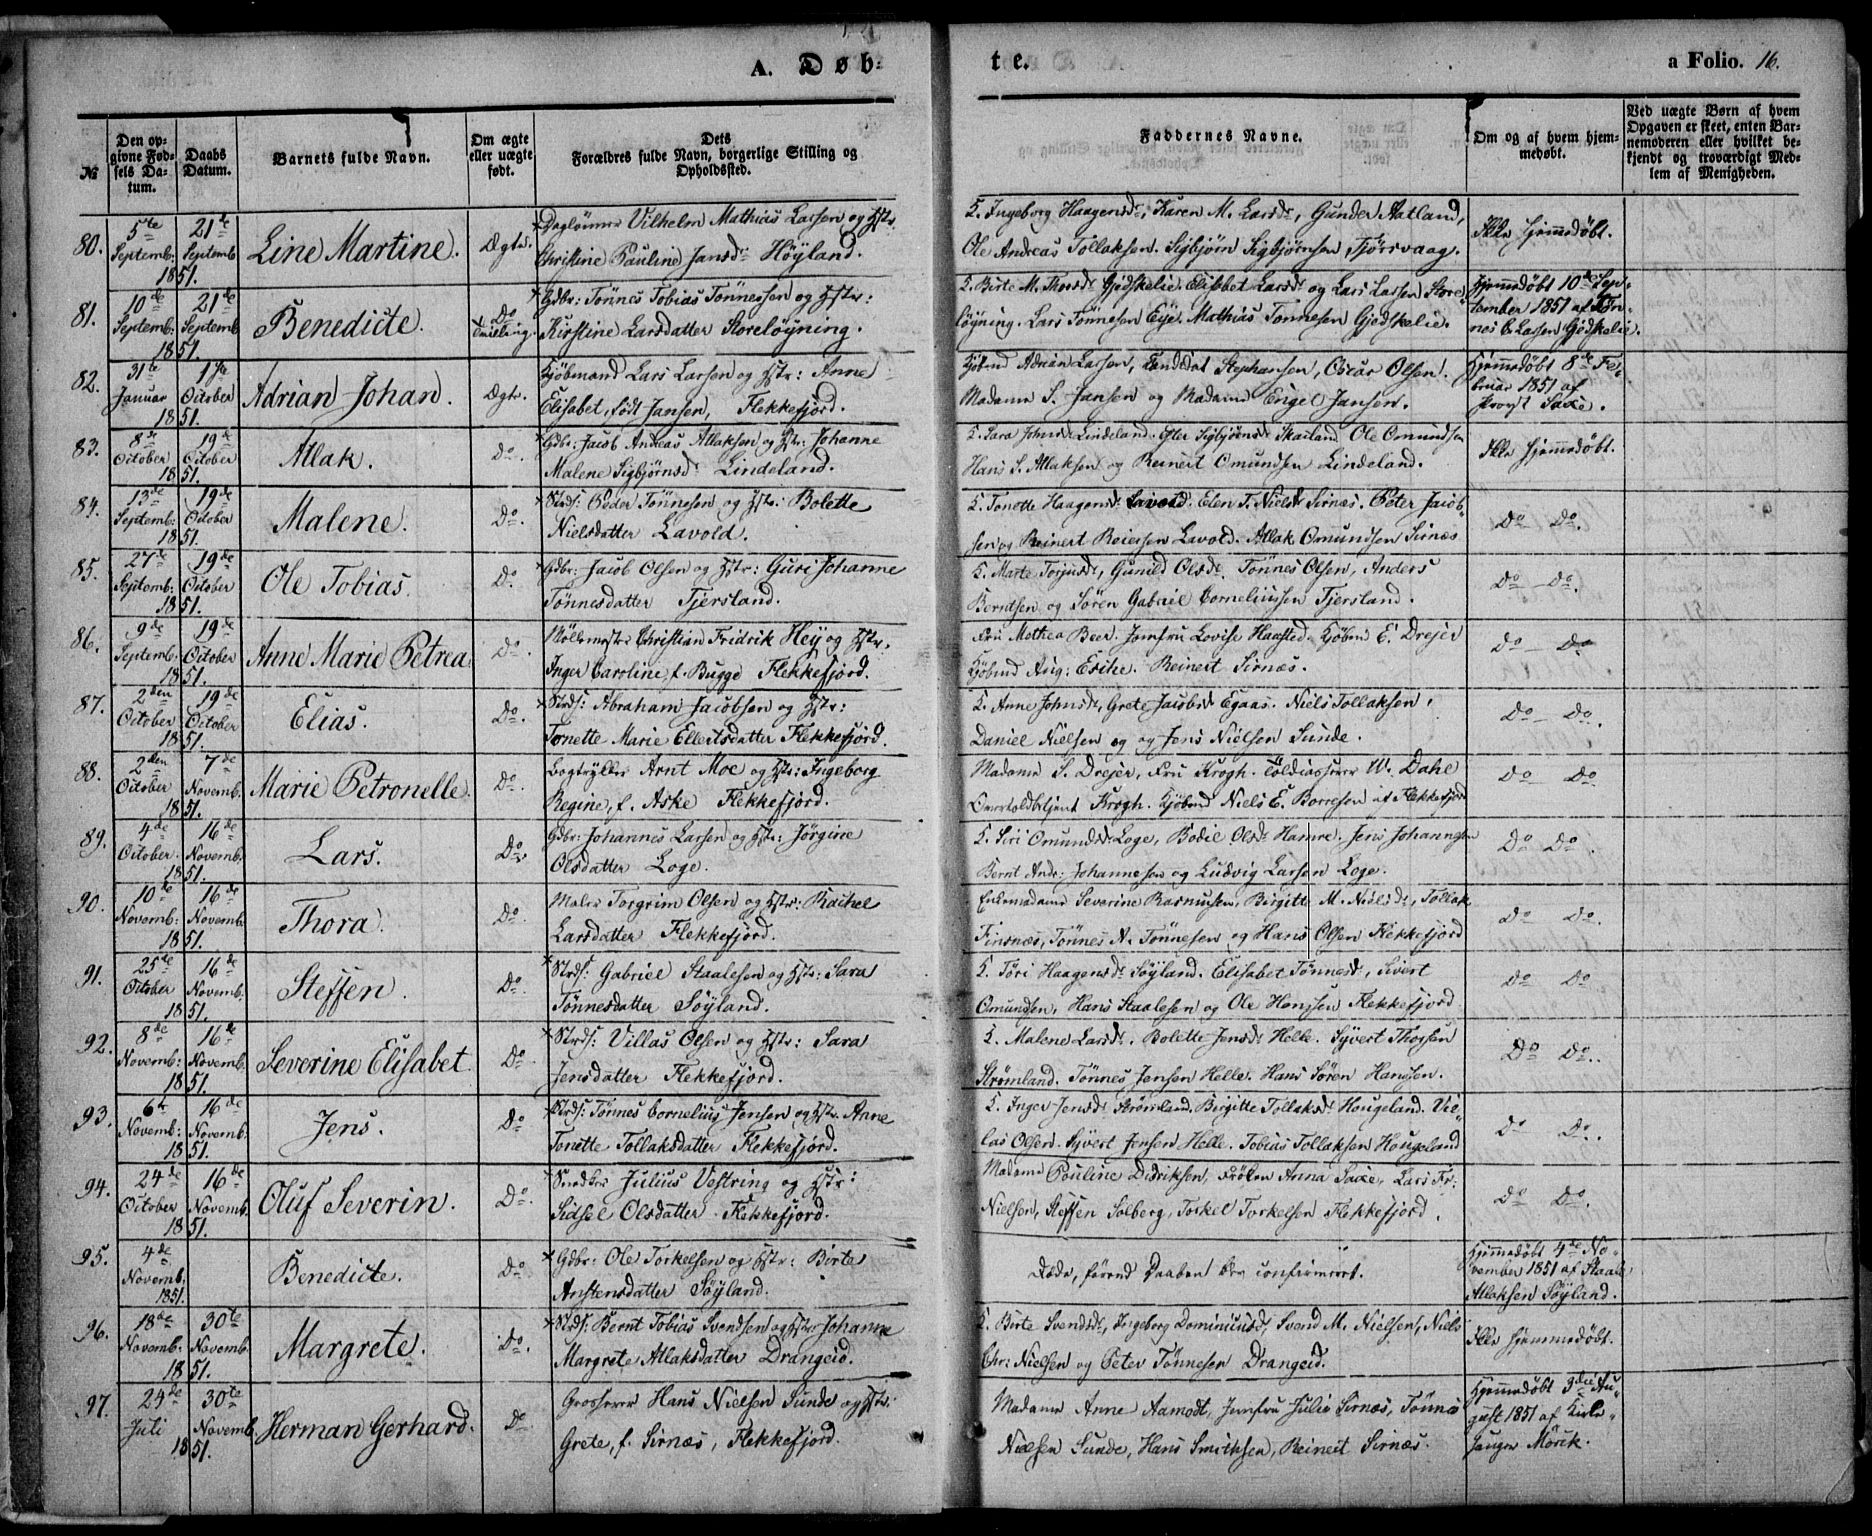 A. Døb-
te.
a Folio. 16.
№
Den op-
givne Fød-
sels Da-
tum.
Daabs
Datum.
Barnets fulde Navn.
Om ægte
eller uægte
født.
Dets
Forældres fulde Navn, borgerlige Stilling og
Opholdssted.
Faddernes Navne.
Om og af hvem hjem-
medøbt.
Ved uægte Børn af hvem
Opgaven er skeet, enten Bar-
nemoderen eller hvilket be-
kjendt og troværdigt Med-
lem af Menigheden.
80.
5te
Septemb.
1851.
21de
Septemb
Line Martine.
Ægte.
Daglønner Vilhelm Mathias Larsen og Hstr.
Christine Pauline Jansd: Höyland.
K. Ingeborg Haagensdt, Karen M. Larsdt, Gunder Aatland,
Ole Andreas Tollaksen. Sigbjørn Sigbjørnsen Fjörsvaag.
Ikke hjemmedøbt.
81.
10de
Septemb:
1851.
21de
Septemb
Benedicte.
Do
Tvilling.
Gdbr: Tönnes Tobias Tönnessen og Hstr:
Kirstine Larsdatter Storeløyning.
K. Birte M. Thorsdt Gjedskelie. Elisbet Larsdt og Lars Larsen Store-
løyning. Lars Tönnesen Eye. Mathias Tönnesen Gjedskelie.
Hjemmedøbt 10de Sep-
tember 1851 af Tön-
nes E. Lassen Gjedskelie.
82.
31te
Januar
1851.
1ste
October
Adrian Johan.
Ægte.
Kjøbmand Lars Larsen og Hstr: Anne
Elisabet, født Jansen, Flekkefjord.
Kjöbmd Adrian Larsen, Stephansen, Oscar Olsen.
Madame S. Jansen og Madame Engel Jansen.
Hjemmedøbt 8de Fe-
bruar 1851 af
Provst Saxe.
83.
8de
October
1851.
19de
October
Atlak.
Do.
Gdbr: Jacob Andreas Atlaksen og Hstr: Johanne
Malene Sigbjørnsd: Lindeland.
K. Sara Johnsdt Lindeland. Ester Sigbjörnsdt Skailand. Ole Omundsen
Hans S. Atlaksen og Reinert Omundsen Lindeland.
Ikke hjemmedøbt.
84.
13de
Septemb:
1851.
19de
October
Malene.
Do.
Strds: Peder Tönnesen og Hstr: Bolette
Nielsdatter Lavold.
K. Tonette Haagensdt Lavold. Elen T. Nielsdt Sirnæs. Peter Jacob-
sen og Reinert Reiersen Lavold. Atlak Omundsen Sirnæs
Do Do.
85.
27de
Septemb:
1851.
19de
October
Ole Tobias.
Do.
Gdbr: Jacob Olsen og Hstr: Guri Johanne
Tönnesdatter Tjersland.
K. Marte Torjusdt, Gunild Olsdt. Tönnes Olsen, Anders
Berntsen og Sören Gabriel Corneliussen Tjersland.
Do - Do.
86.
9de
Septemb:
1851.
19de
October
Anne Marie Petrea
Do.
Möllemester Christian Fridrik Hey og Hstr.
Inger Caroline, f. Bugge Flekkefjord.
Fru Mothea Beer. Jomfru Lovise Haasted. Kjöbmd E. Drejer
Kjöbmd Aug: Reinert Sirnæs.
Do - Do
87.
2den
October
1851.
19de
October
Elias.
Do.
Strds: Abraham Jacobsen og Hstr:
Tonette Marie Ellertsdatter Flekkefjord.
K. Anne Johnsdt, Grete Jacobsdt Egaas. Niels Tollaksen,
Daniel Nielsen og og Jens Nielsen Sunde.
Do - Do.
88.
2den
October
1851.
7de
Novemb.
Marie Petronelle.
Do.
Bogtrykker Arnt Moe og Hstr: Ingeborg
Regine, f. Aske Flekkefjord.
Madame S. Drejer, Fru Krogh. Toldkasserer W. Dahl
Overtoldbetjent Krogh. Kjöbmd Niels E. Borresen af Flekkefjord
Do Do.
89.
4de
October.
1851.
16de
Novemb.
Lars.
Do.
Gdbr: Johannes Larsen og Hstr: Jörgine
Olsdatter Loge.
K. Siri Omundsdt Loge, Bodil Olsdt Hamre. Jens Johannesen
Bernt Andr: Johannesen og Ludvig Larsen Loge.
Do Do.
90.
10de
Novemb:
1851.
16de
Novemb.
Thora.
Do.
Maler Torgrim Olsen og Hstr: Rachel
Larsdatter Flekkefjord.
Enkemadame Severine Rasmussen, Birgitte M. Nielsdt, Tollak
Finsnæs, Tönnes N. Tönnesen og Hans Olsen Flekkefjord
Do Do.
91.
25de
October
1851.
16de
Novemb.
Steffen.
Do.
Strds: Gabriel Staalesen og Hstr: Sara
Tönnesdatter Söyland.
K. Töri Haagensdt Søyland. Elisabet Tönnesdt, Sivert
Omundsen, Hans Staalesen og Ole Hansen Flekkefjord
Do Do.
92.
8de
Novemb:
1851.
16de
Novemb.
Severine Elisabet.
Do.
Strds: Villas Olsen og Hstr: Sara
Jensdatter Flekkefjord.
K. Malene Larsdt. Bolette Jensdt Helle. Syvert Thorsen
Strømland. Tönnes Jensen Helle. Hans Sören Hansen.
Do Do.
93.
6te
Novemb:
1851.
16de
Novemb.
Jens.
Do
Strds: Tönnes Cornelius Jensen og Hstr. Anne
Tonette Tollaksdatter Flekkefjord.
K. Inger Jensdt Strømland. Birgitte Tollaksdt Hougeland. Vil-
las Olsen. Syvert Jensen Helle. Tobias Tollaksen Hougeland
Do Do.
94.
24de
October
1851.
16de
Novemb.
Oluf Severin.
Do.
Snedker Julius Vestring og Hstr:
Sidsel Olsdatter Flekkefjord.
Madame Pouline Didriksen, Frøken Anna Saxe, Lars Fr:
Nielsen, Steffen Solberg, Torkel Torkelsen Flekkefjord.
Do Do.
95.
4de
Novemb.
1851.
Benedicte.
Do
Gdbr: Ole Torkelsen og Hstr: Birte
Anstensdatter Söyland.
Døde, førend Daaben blev confirmeret.
Hjemmedøbt 4de No-
vember 1851 af Staale
Atlaksen Søyland.
96.
18de
Novemb:
1851.
30te
Novemb.
Margrete.
Do.
Strds: Bernt Tobias Svendsen og Hstr. Johanne
Margrete Atlaksdatter Drangeid.
K. Birte Svendsdt, Ingeborg Dominicusdt, Svend M. Nielsen, Niels
Chr: Nielsen og Peter Tönnesen Drangeid.
Ikke hjemmedøbt.
97.
24de
Juli
1851.
30te
Novemb.
Herman Gerhard.
Do
Grosserer Hans Nielsen Sunde og Hstr:
Grete, f. Sirnæs, Flekkefjord.
Madame Anne Aamodt, Jomfru Julie Sirnæs, Tönnes
Nielsen Sunde, Hans Smithsen, Reinert Sirnæs.
Hjemmedøbt 3die Au-
gust 1851 af Kirke-
sanger Mörck.